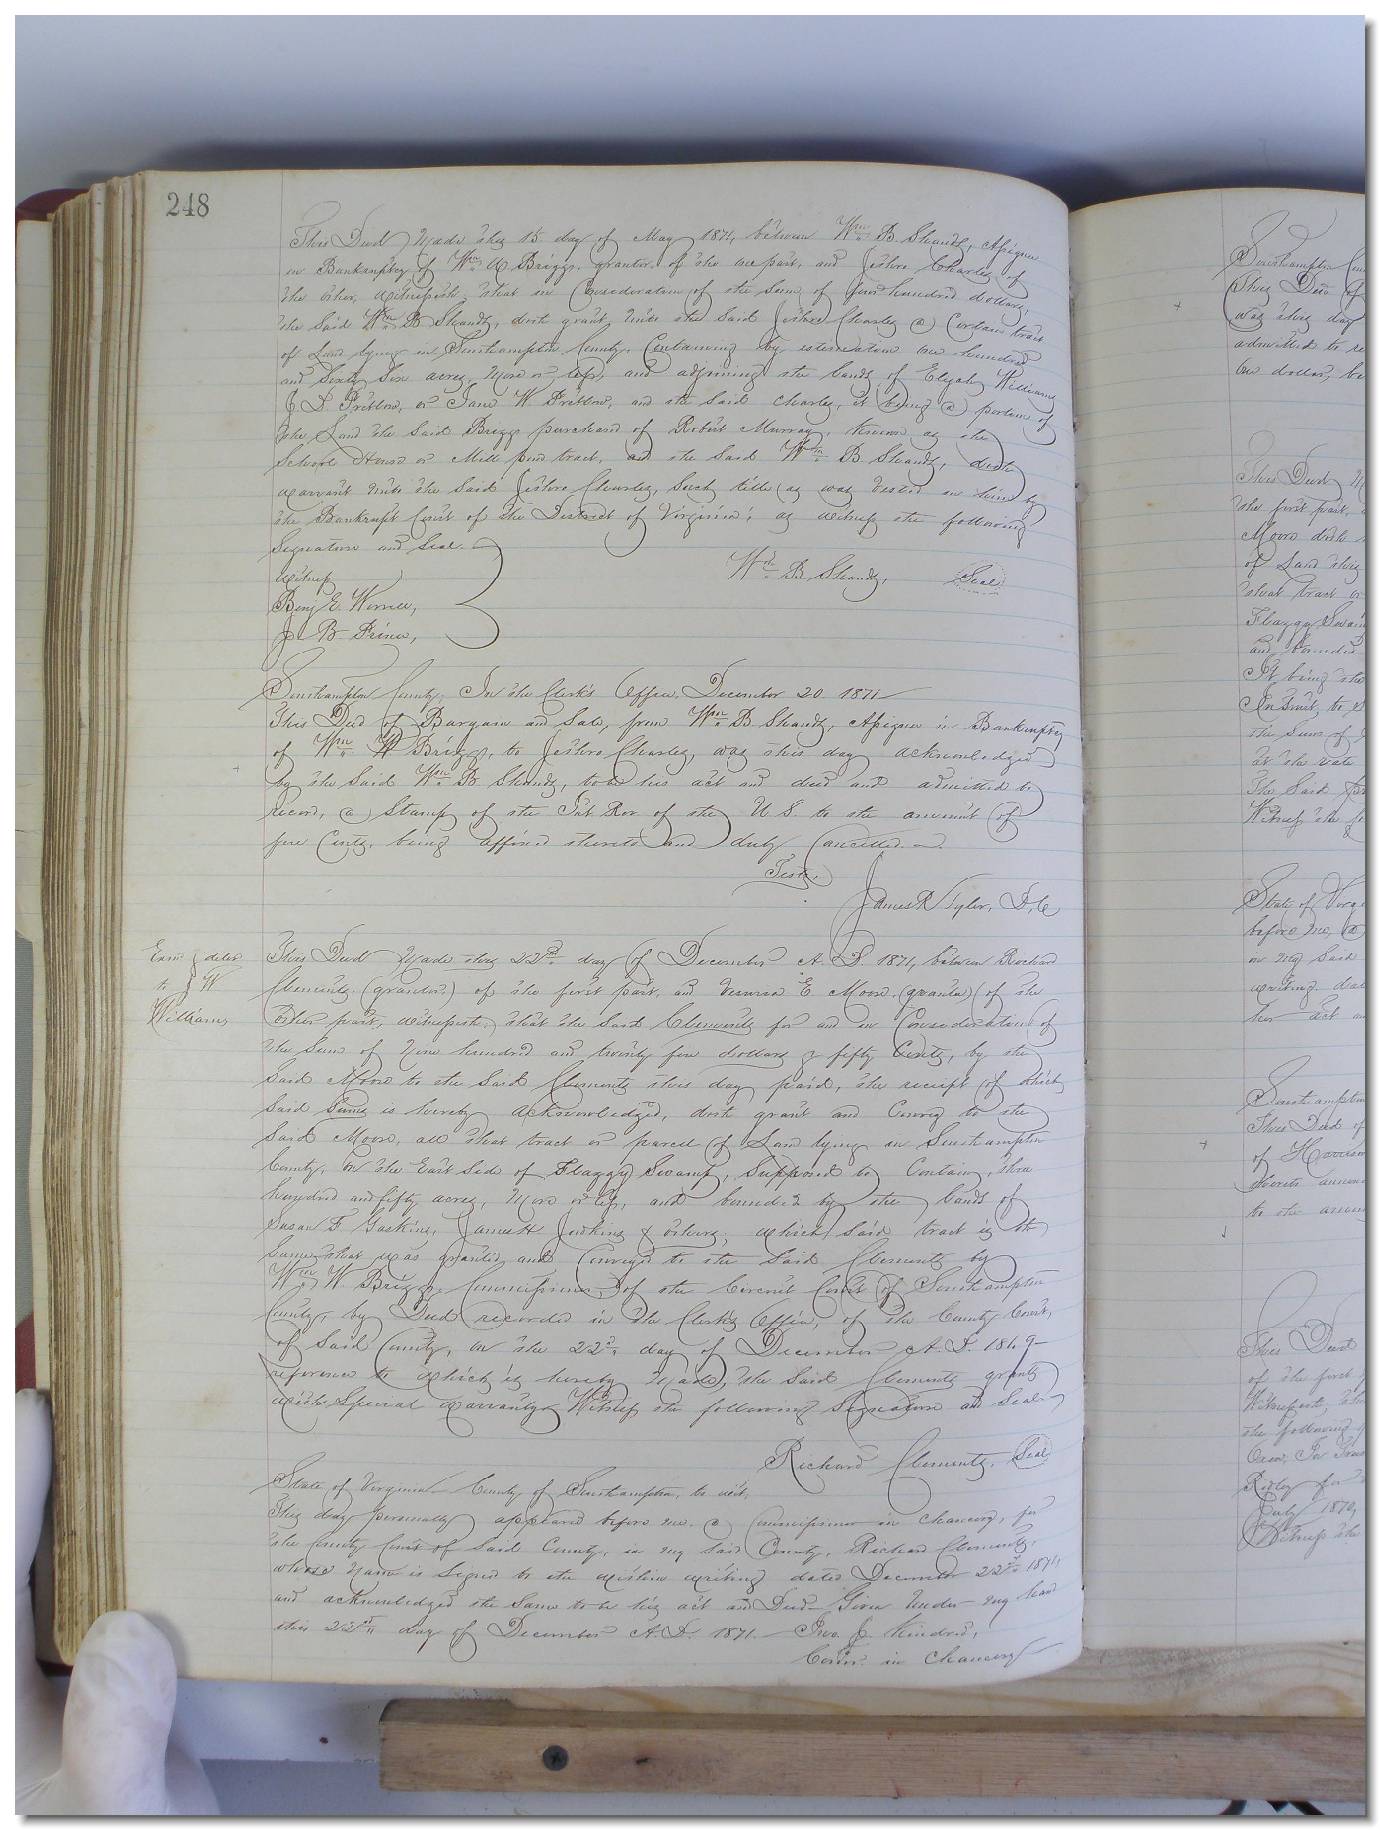 248
This Deed Made this 15 day of May 1871, between Wm B Shands, Assignee
in Bankruptcy of Wm W Briggs, grantor, of the one part, and Jethro Charles of
the other, witnesseth, that in Consideration of the Sum of four hundred dollars,
the Said Wm B Shands, doth grant, unto the Said Jethro Charles a Certain tract
of Land lying in Southampton County, Containing by estimation one hundred
and Sixty Six acres, More or less, and adjoining the lands of Elijah Williams
J D Pretlow, or Jane W Pretlow, and the Said Charles, it being a portion of
the Land the Said Briggs purchased of Robert Murray, known as the
School House or Mill pond tract, and the Said Wm B. Shands, doth
warrant unto the Said Jethro Charles, Such title as was vested in him by
the Bankrupt Court of the District of Virginia; as witness the following
Signature and Seal.
Witness
Wm B Shands, Seal
Benj E. Worrell,
J. B Prince,
Southampton County, In the Clerk's Office, December 20 1871
This Deed of Bargain and Sale, from Wm B Shands, Assignee in Bankruptcy
of Wm W Briggs, to Jethro Charles, was this day acknowledged
by the Said Wm B. Shands, to be his act and deed and admitted to
record, a Stamp of the Int Rev of the U. S. to the amount of
five Cents, being affixed thereto and duly Cancelled.
Teste,
James R Tyler, D, C
Exmd & deld
to W
Williams
This Deed Made this 22nd day of December A. D. 1871, between Richard
Clements (grantor) of the first part, and E. Moore (grantee) of the
other part, witnesseth; that the Said Clements for and in Consideration of
the Sum of Nine hundred and twenty five dollars & fifty Cents, by the
Said Moore to the Said Clements this day paid, the receipt of which
Said Sum is hereby acknowledged, doth grant and Convey to the
Said Moore, all that tract or parcel of Land lying in Southampton
County, on the East Side of Flaggy Swamp, Supposed to Contain, three
hundred and fifty acres, More or less, and bounded by the lands of
Susan F Gaskins, James H Jenkins & others, which Said tract is the
Same that was granted and Conveyed to the Said Clements by
Wm W Briggs, Commissioner of the Circuit Court of Southampton
County, by Deed recorded in the Clerk's Office, of the County Court,
of Said County, on the 22nd day of December A. D. 1869
reference to which is hereby Made, the Said Clements grants
with Special warranty Witness the following Signature and Seal
Richard Clements, Seal
State of Virginia County of Southampton, to wit,
This day personally appeared before me a Commissioner in Chancery, for
the County Court of Said County, in my Said County, Richard Clements,
whose Name is Signed to the within writing dated December 22nd 1871,
and acknowledged the Same to be his act and Deed Given under my hand
this 22nd day of December A. D. 1871. Jno. J. Kindred,
Comr. in Chancery
Southampton
This Deed of
was this day
admitted to re
One dollar, be
This Deed
the first part,
Moore doth
of Land
that tract or
Flaggy Swam
and bounded
It being the
In trust, to
the Sum of
at the rate
The Said
Witness the fo
State of Virg
before me, a
in my Said
writing, dat
her act an
Southampton
This Deed of
of Harrison
to the amou
This Deed
of the first
Witnesseth, tha
the following
July 1870
Witness the